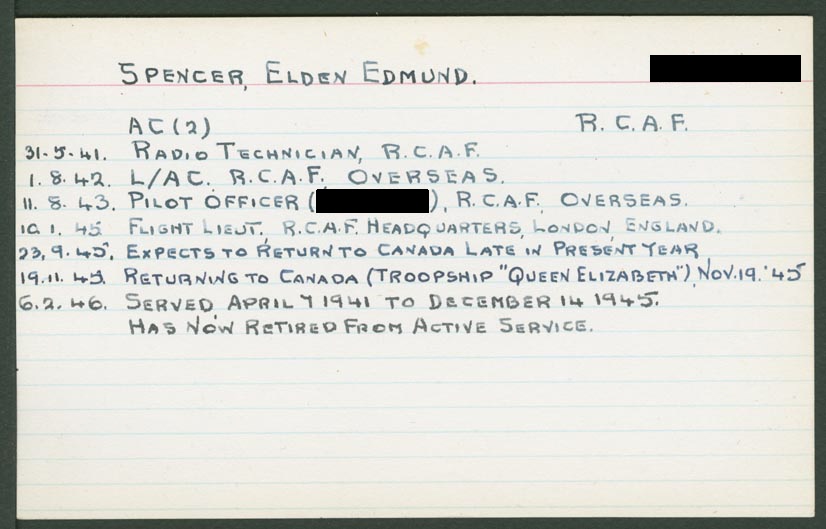 SPENCER, ELDEN EDMUND.
AC(2) R.C.A.F.
31-5-41. RADIO TECHNICIAN, R.C.A.F.
1.8.42. L/AC. R.C.A.F. OVERSEAS.
11.8.43. PILOT OFFICER ( ), R.C.A.F. OVERSEAS.
10.1.45 FLIGHT LIEUT. R.C.A.F. HEADQUARTERS, LONDON, ENGLAND.
23.9.45. EXPECTS TO RETURN TO CANADA LATE IN PRESENT YEAR
19.11.45. RETURNING TO CANADA (TROOPSHIP "QUEEN ELIZABETH"), NOV.19.'45
6.2.46. SERVED APRIL 7 1941 TO DECEMBER 14 1945.
HAS NOW RETIRED FROM ACTIVE SERVICE.